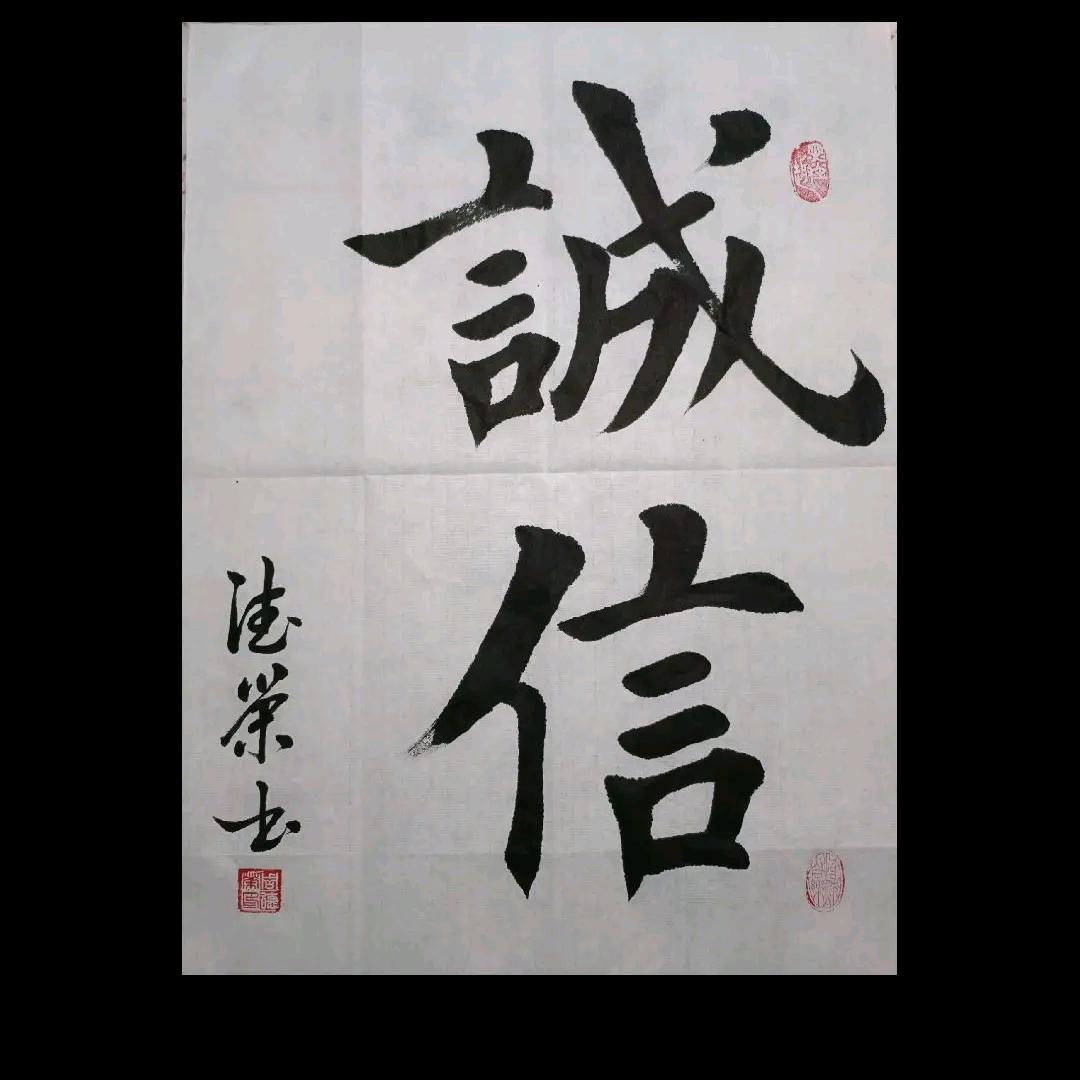 誠信
德榮书